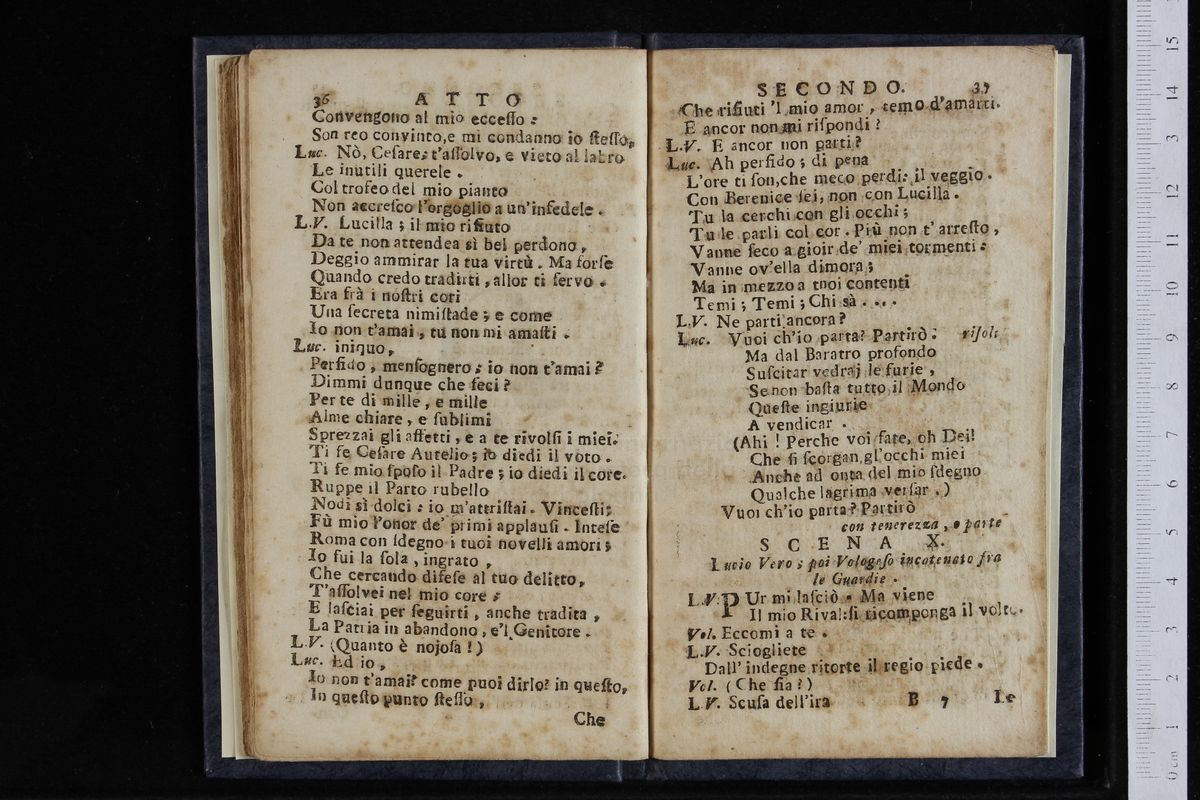 36 ATTO
Convengono al mio eccesso:
Son reo convinto, e mi condanno io stesso,
Luc. Nò, Cesare: t'assolvo, e vieto al labro
Le inutili querele.
Col trofeo del mio pianto
Non accresco l'orgoglio a un'infedele.
L.V. Lucilla; il mio rifiuto
Da te non attendea sì bel perdono,
Deggio ammirar la tua virtù. Ma forse
Quando credo tradirti, allor ti servo.
Era frà i nostri cori
Una secreta nimistade; e come
Io non t'amai, tu non mi amasti.
Luc. iniquo,
Perfido, mensognero; io non t'amai?
Dimmi dunque che feci?
Per te di mille, e mille
Alme chiare, e sublimi
Sprezzai gli affetti, e a te rivolsi i miei.
Ti fe Cesare Aurelio; io diedi il voto.
Ti fe mio sposo il Padre; io diedi il core.
Ruppe il Parto rubello
Nodi sì dolci: io m'attristai. Vincesti;
Fù mio l'onor de' primi applausi. Intese
Roma con sdegno i tuoi novelli amori;
Io fui la sola, ingrato,
Che cercando difese al tuo delitto,
T'assolvei nel mio core:
E lasciai per seguirti, anche tradita,
La Patria in abandono, e'l Genitore.
L.V. (Quanto è nojosa!)
Luc. Ed io,
Io non t'amai? come puoi dirlo? in questo,
In questo punto stesso,
Che
SECONDO. 37
Che rifiuti 'l mio amor, temo d'amarti.
E ancor non mi rispondi?
L.V. E ancor non parti?
Luc. Ah perfido; di pena
L'ore ti son, che meco perdi: il veggio.
Con Berenice sei, non con Lucilla.
Tu la cerchi con gli occhi;
Tu le parli col cor. Più non t'arresto,
Vanne seco a gioir de' miei tormenti:
Vanne ov'ella dimora;
Ma in mezzo a tuoi contenti
Temi; Temi; Chi sà....
L.V. Ne parti ancora?
Luc. Vuoi ch'io parta? Partirò: risol:
Ma dal Baratro profondo
Suscitar vedraj le furie,
Se non basta tutto il Mondo
Queste ingiurie
A vendicar.
(Ahi! Perche voi fate, oh Dei!
Che si scorgan gl'occhi miei
Anche ad onta del mio sdegno
Qualche lagrima versar.)
Vuoi ch'io parta? Partirò
con tenerezza, e parte
SCENA X.
Lucio Vero; poi Vologeso incatenato fra
le Guardie.
L.V. PUr mi lasciò. Ma viene
Il mio Rival: si ricomponga il volto.
Vol. Eccomi a te.
L.V. Sciogliete
Dall' indegne ritorte il regio piede.
Vol. (Che sia?)
L.V. Scusa dell'ira
B 7 Le